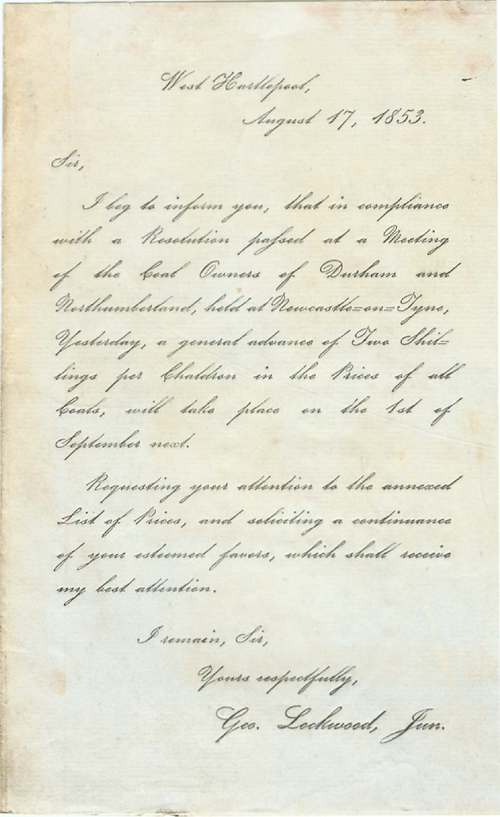 West Hartlepool,
August 17, 1853.
Sir,
I beg to inform you, that in compliance
with a Resolution passed at a Meeting
of the Coal Owners of Durham and
Northumberland, held at Newcastle=on=Tyne,
Yesterday, a general advance of Two Shil=
lings per Chaldron in the Prices of all
Coals, will take place on the 1st of
September next.
Requesting your attention to the annexed
List of Prices, and soliciting a continuance
of your esteemed favors, which shall receive
my best attention.
I remain, Sir,
Yours respectfully,
Geo. Lockwood, Jun.